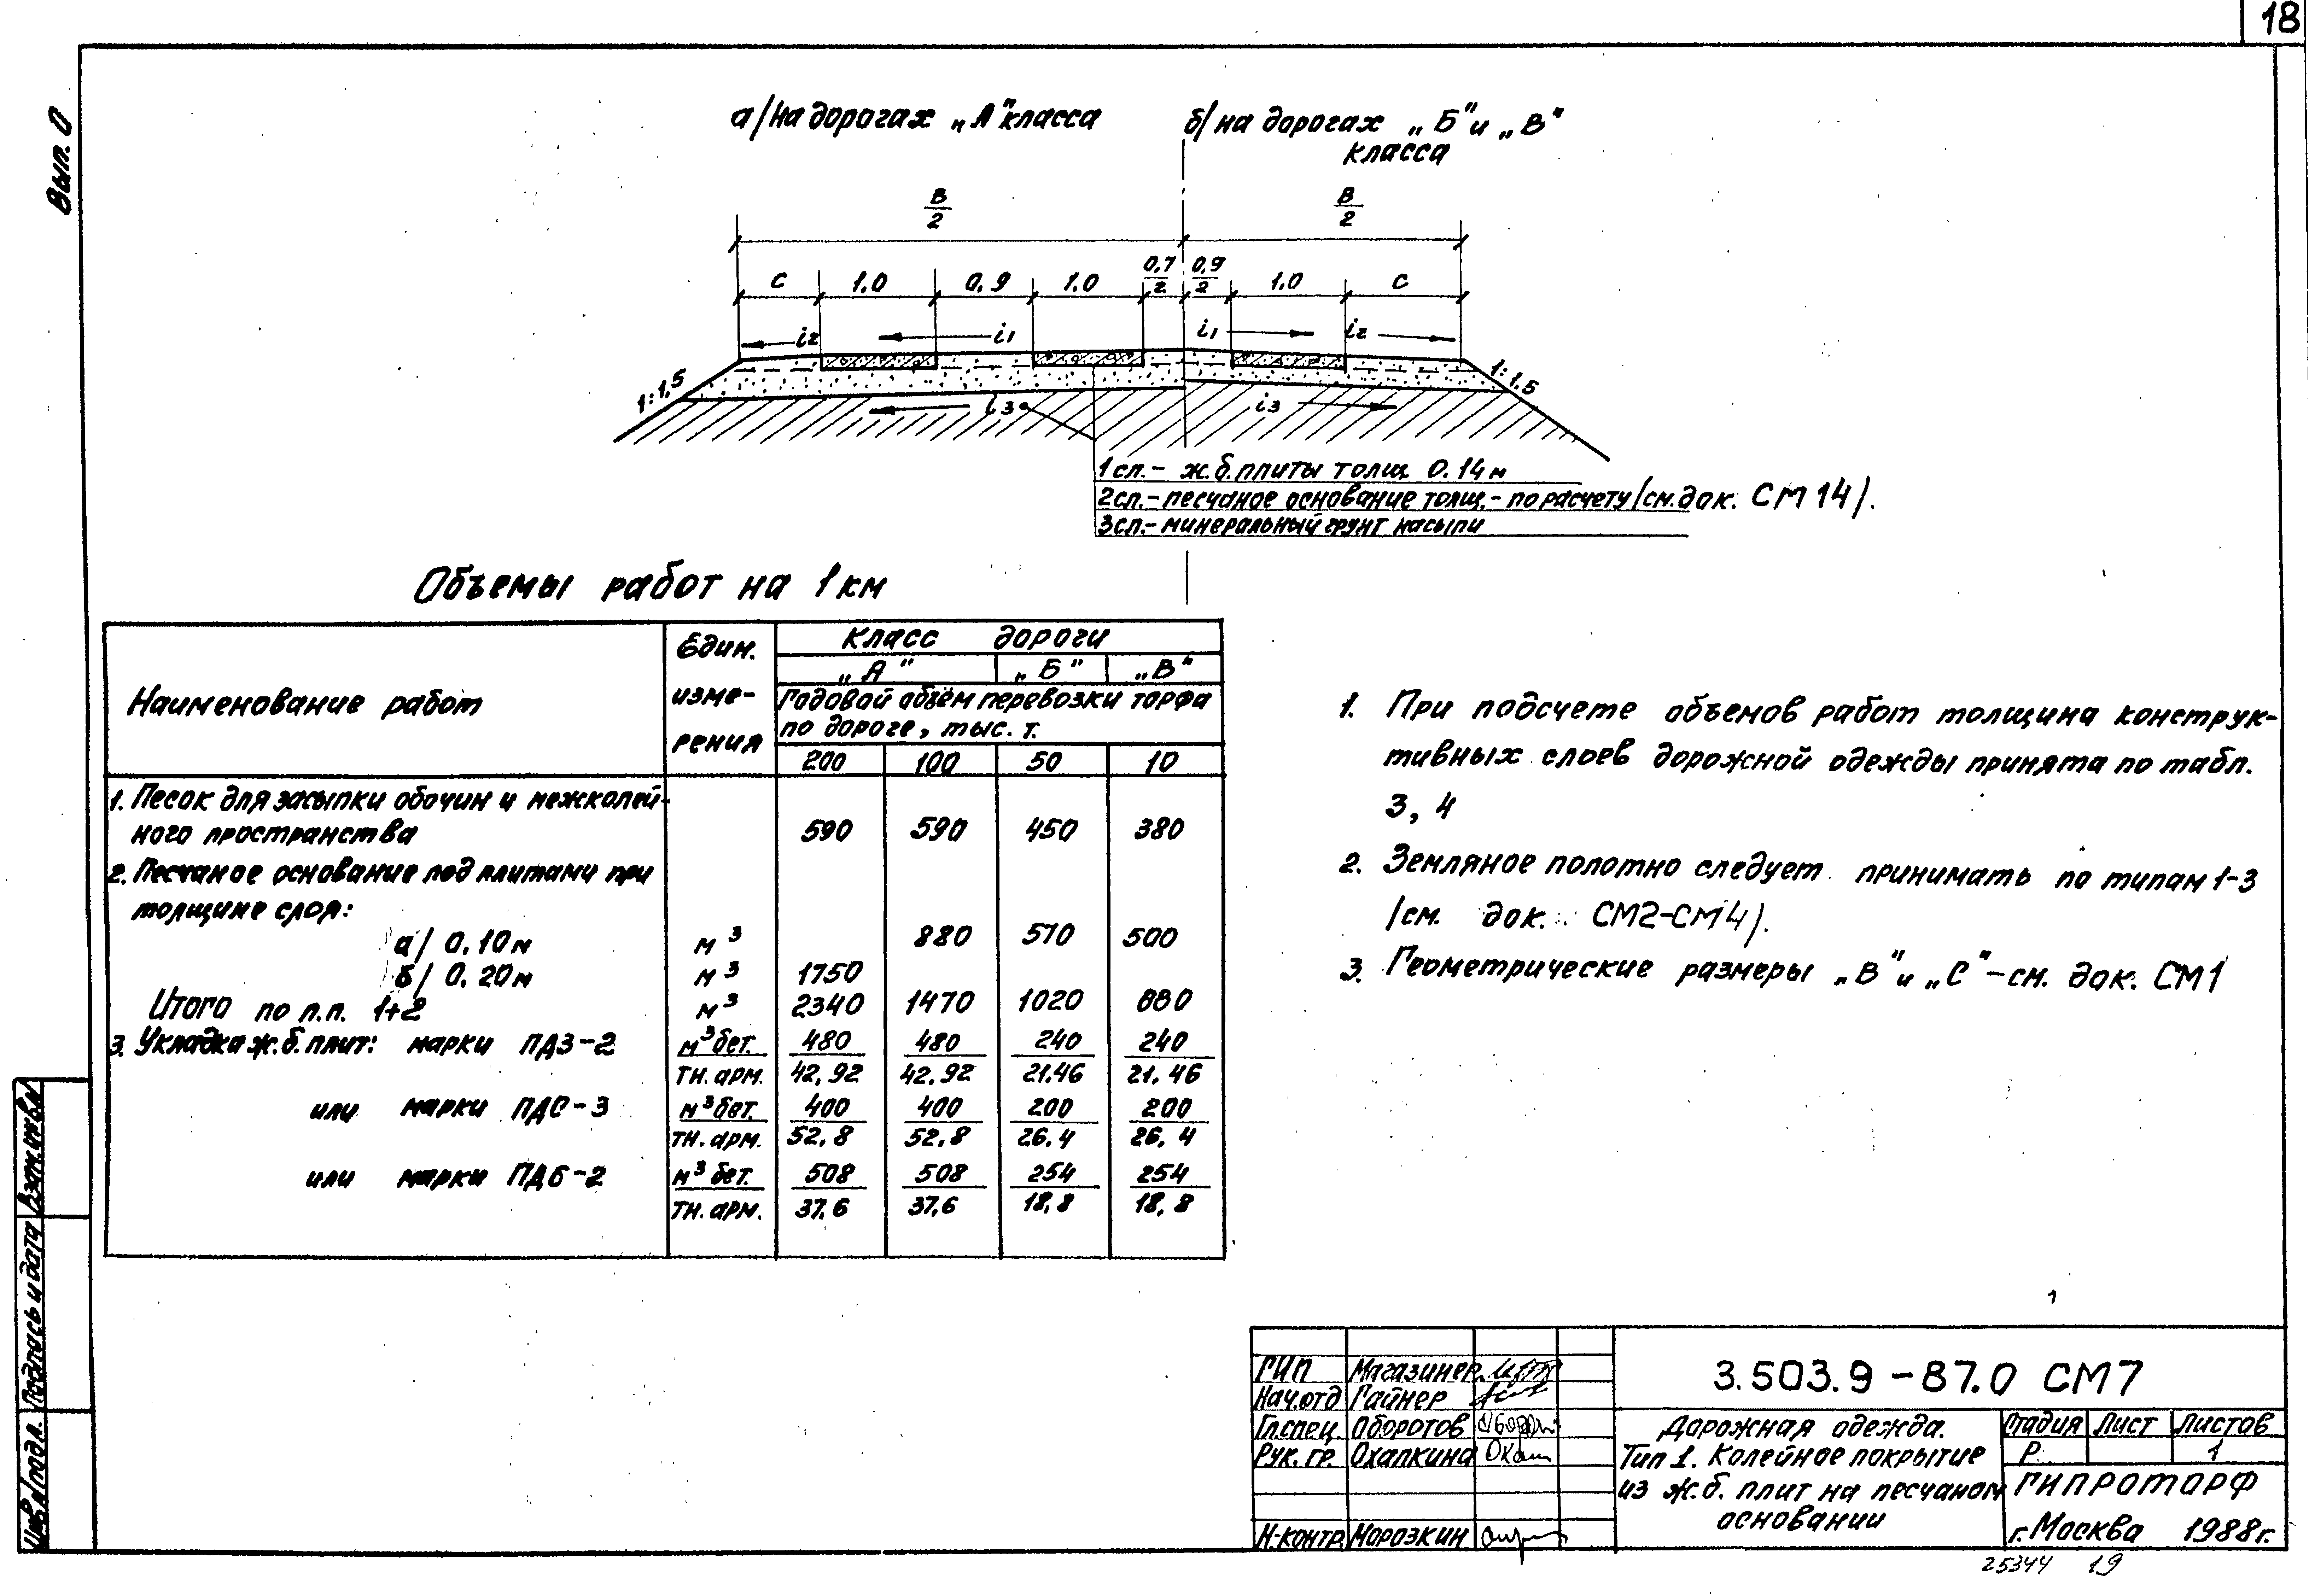 18
Вып. 0
а/ на дорогах „А" класса
б/ на дорогах „Б" и „В"
класса
В/2
В/2
с 1.0 0,9 1.0 0,7/2 0,9/2 1.0 с
i2 i1 i1 i2
1:1,5
1:1,5
i3 i3
1сл.- ж.б. плиты толщ. 0.14м
2сл.- песчаное основание толщ.- по расчету /см. док. СМ 14/.
3сл.- минеральный грунт насыпи
Объемы работ на 1км
Наименование работ
Един.
изме-
рения
Класс дороги
„А" „Б" „В"
Годовой объём перевозки торфа
по дороге, тыс. т.
200 100 50 10
1. Песок для засыпки обочин и межколей-
ного пространства 590 590 450 380
2. Песчаное основание под плитами при
толщине слоя:
а/ 0.10м м³ 880 570 500
б/ 0.20м м³ 1750
Итого по п.п. 1+2 м³ 2340 1470 1020 880
3. Укладка ж.б. плит: марки ПД3-2 м³ бет. 480 480 240 240
тн. арм. 42,92 42,92 21.46 21.46
или марки ПДС-3 м³ бет. 400 400 200 200
тн. арм. 52,8 52,8 26,4 26,4
или марки ПД6-2 м³ бет. 508 508 254 254
тн. арм. 37.6 37,6 18,8 18,8
1. При подсчете объемов работ толщина конструк-
тивных слоев дорожной одежды принята по табл.
3, 4
2. Земляное полотно следует принимать по типам 1-3
/см. док. СМ2-СМ4/.
3. Геометрические размеры „В" и „С" - см. док. СМ1
Инв.№ подл. Подпись и дата Взам.инв.№
ГИП Магазинер
Нач.отд Гайнер
Гл.спец. Оборотов
Рук. гр. Охапкина
Н-контр. Морозкин
3.503.9-87.0 СМ7
Дорожная одежда.
Тип 1. Колейное покрытие
из ж.б. плит на песчаном
основании
Стадия Лист Листов
Р 1
ГИПРОТОРФ
г. Москва 1988г.
25344 19